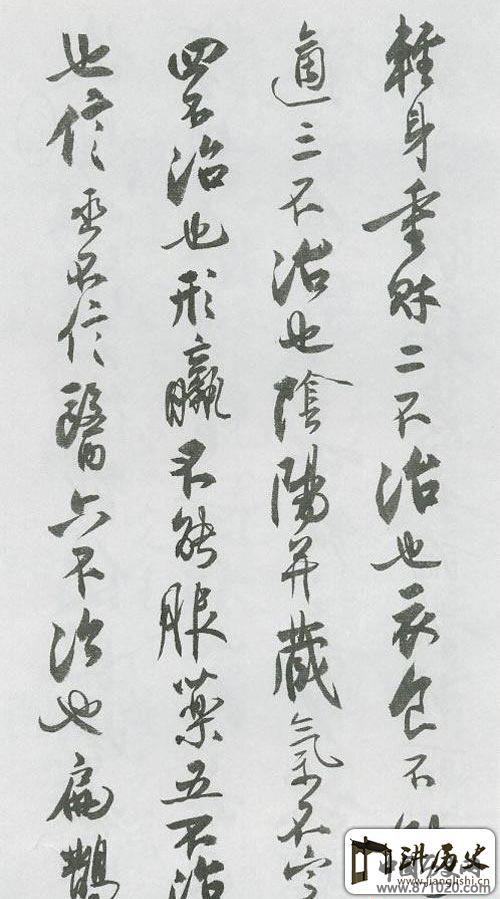 輕身重財二不治也衣食不
適三不治也陰陽并藏氣不定
四不治也形羸不能服藥五不治
也信巫不信醫六不治也扁鵲
讲历史
www.jianglishi.cn
www.871020.com